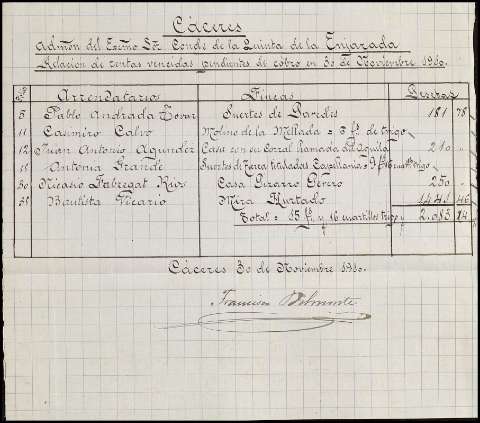 Cáceres
Admón del Excmo Sr Conde de la Quinta de la Enjarada
Relación de rentas vencidas pendientes de cobro en 30 de Noviembre 1910.
Nº Arrendatarios Fincas Pesetas
Pablo Andrada Tovar Suertes de Paredis 181 78
11 Casimiro Calvo Molino de la Mellada = 3 fs. de trigo
12 Juan Antonio Agúndez Casa con su corral llamada del Aguila 210
Antonia Grande Suertes de tierra tituladas Capellanias = trigo
30 Nicasio Fabregat Rios Casa Pizarro 250
Bautista Vicario Mira Hurtado 1441 46
Total = 15 fs. y 16 cuartillos trigo y 2.083 24
Cáceres 30 de Noviembre 1910.
Francisco Belmonte